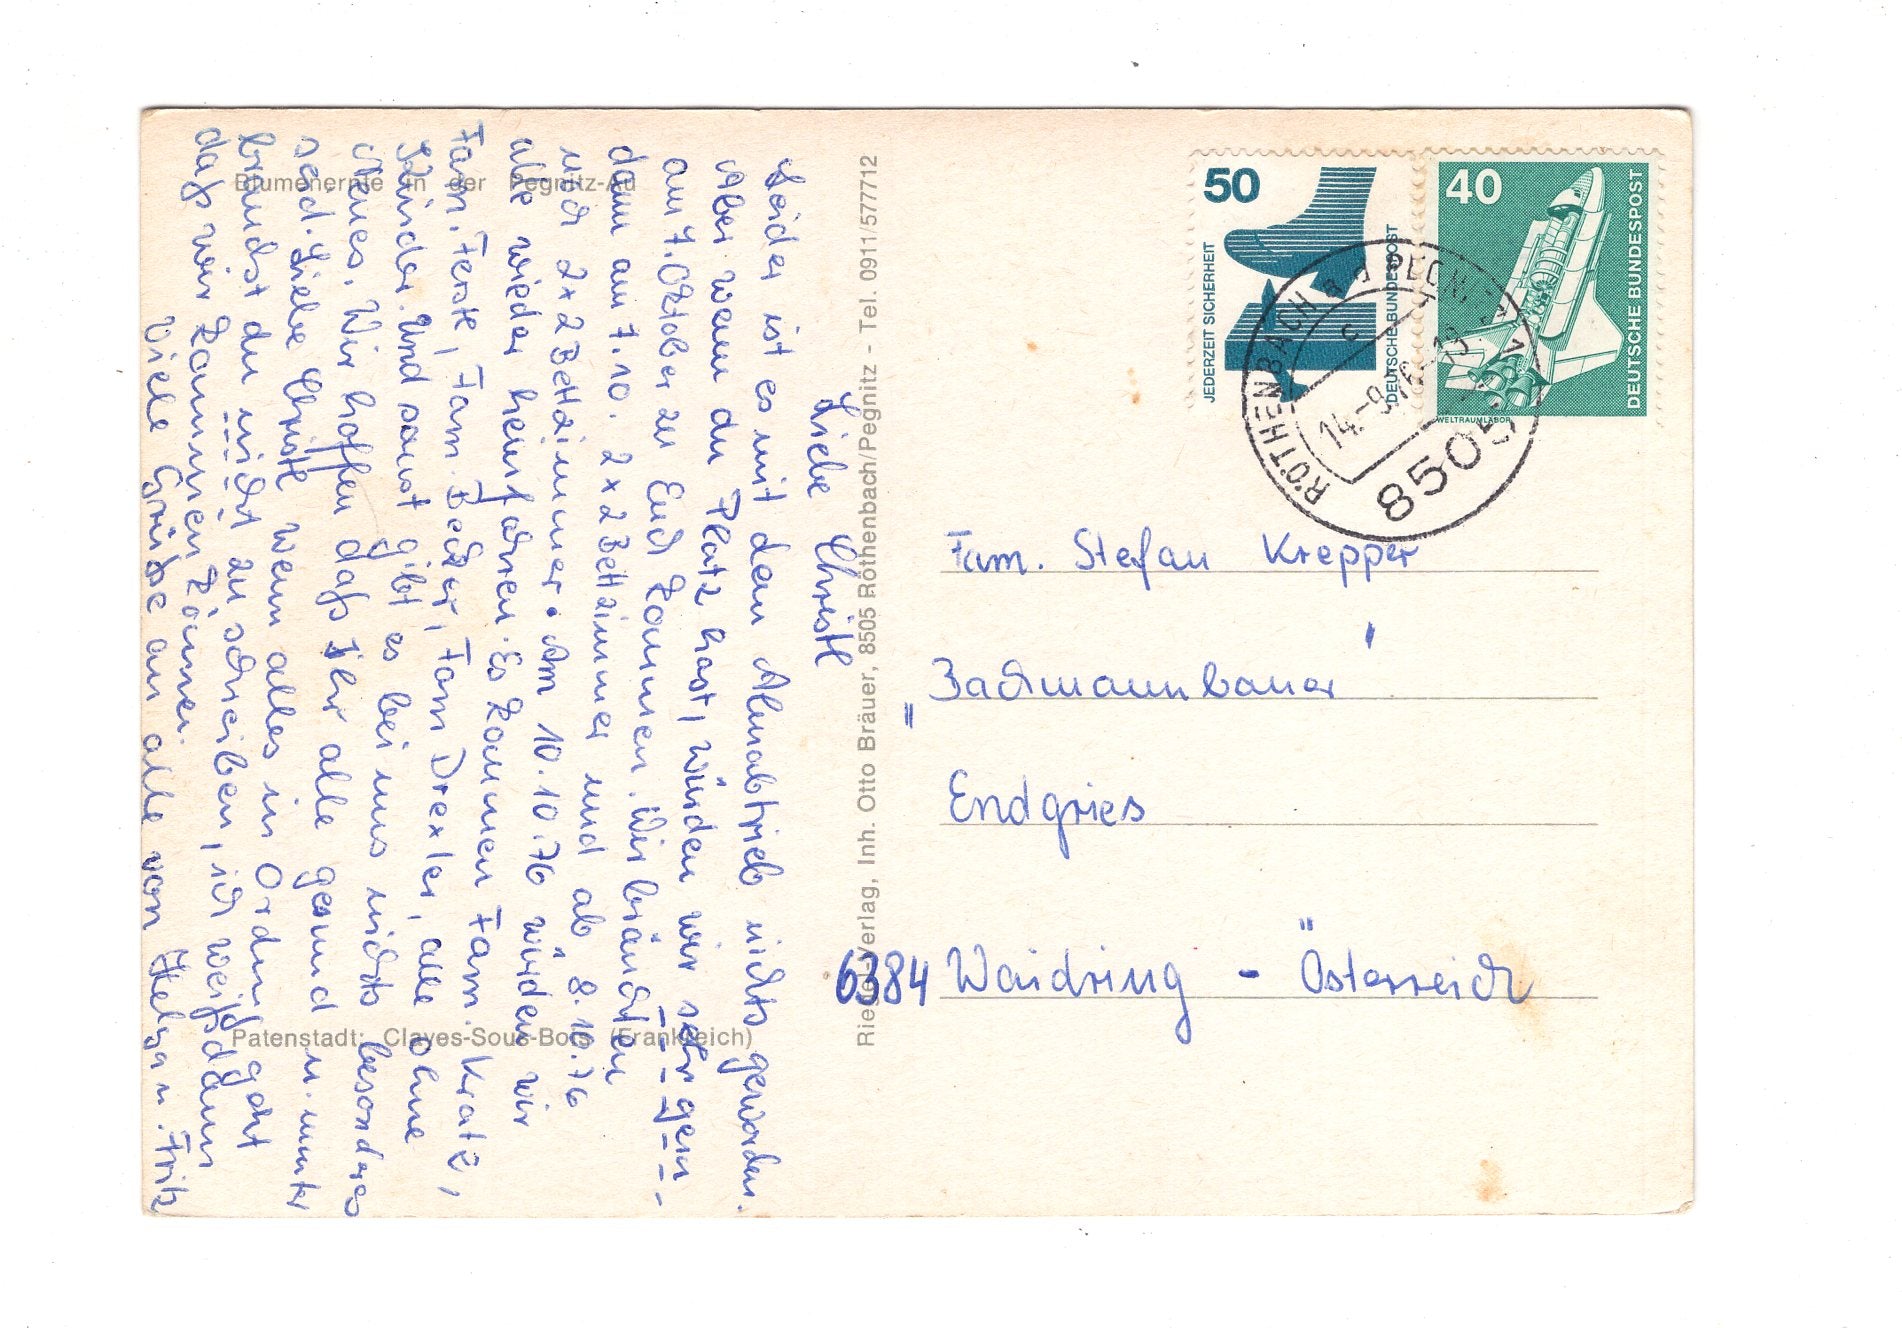 Blumenernte in der Pegnitz-Au
Liebe Christl
Leider ist es mit dem Almabtrieb nichts geworden.
Aber wenn du Platz hast, würden wir sehr gern
am 7. Oktober zu Euch kommen. Wir bräuchten
dann am 7.10. 2x2 Bettzimmer und ab 8.10.76
noch 2x2 Bettzimmer. Am 10.10.76 würden wir
alle wieder heimfahren. Es kommen Fam. Kratz,
Fam. Ferstl, Fam. Becker, Fam Drexler, alle ohne
Kinder. Und sonst gibt es bei uns nichts besondres
Neues. Wir hoffen daß Ihr alle gesund u. munter
seid. Liebe Christl wenn alles in Ordnung geht
brauchst du nicht zu schreiben, ich weiß dann
daß wir kommen können.
Viele Grüße an alle von Helga u. Fritz
Patenstadt: Clayes-Sous-Bois (Frankreich)
Verlag, Inh. Otto Bräuer, 8505 Röthenbach/Pegnitz - Tel. 0911/577712
50
JEDERZEIT SICHERHEIT
DEUTSCHE BUNDESPOST
40
WELTRAUMLABOR
DEUTSCHE BUNDESPOST
RÖTHENBACH a d PEGNITZ
14.-9.76
8505
Fam. Stefan Krepper
"Bachmannbauer"
Endgries
6384 Waidring - Österreich